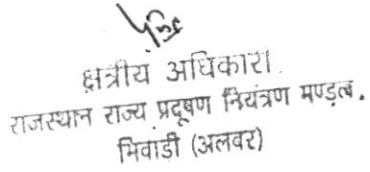 क्षत्रीय अधिकारी.
राजस्थान राज्य प्रदूषण नियंत्रण मण्डल.
भिवाड़ी (अलवर)